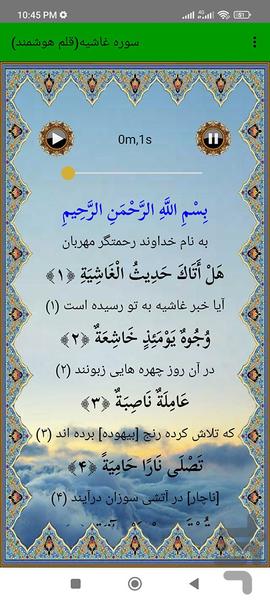 10:45 PM
سوره غاشیه(قلم هوشمند)
0m,1s
بِسْمِ اللَّهِ الرَّحْمَنِ الرَّحِيمِ
به نام خداوند رحمتگر مهربان
هَلْ أَتَاكَ حَدِيثُ الْغَاشِيَةِ ﴿۱﴾
آیا خبر غاشیه به تو رسیده است (۱)
وُجُوهٌ يَوْمَئِذٍ خَاشِعَةٌ ﴿۲﴾
در آن روز چهره هایی زبونند (۲)
عَامِلَةٌ نَاصِبَةٌ ﴿۳﴾
که تلاش کرده رنج [بیهوده] برده اند (۳)
تَصْلَى نَارًا حَامِيَةً ﴿۴﴾
[ناچار] در آتشی سوزان درآیند (۴)